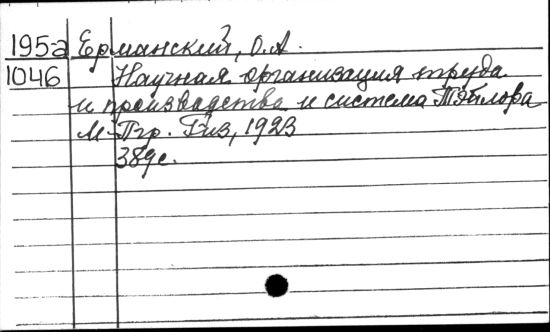 195а Ерманский, О.А.
1046 Научная организация труда
и производства и система Тэйлора
М-Пгр. Гиз, 1923
389с.